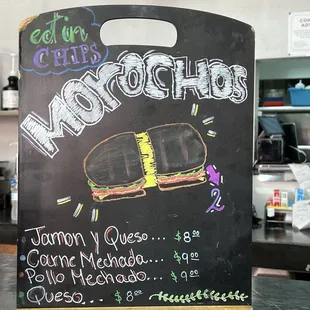 eat in
CHIPS
MOROCHOS
2
Jamon y Queso... $8.00
Carne Mechada... $9.00
Pollo Mechado... $9.00
Queso... $8.00